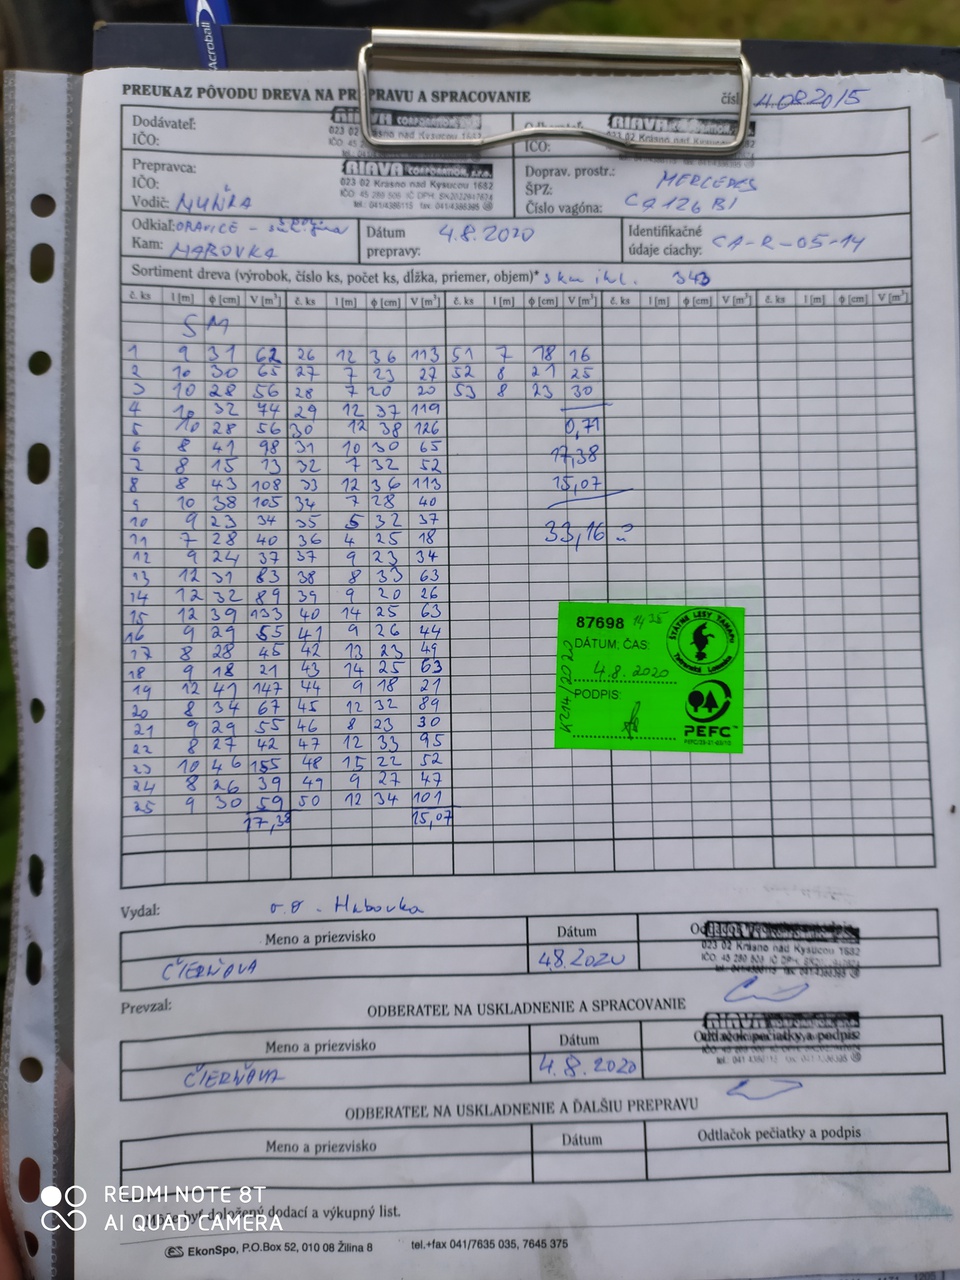 Acroball
PREUKAZ PÔVODU DREVA NA PREPRAVU A SPRACOVANIE
čísl 4.08.2015
Dodávateľ:
IČO:
RIAVA CORPORATION, s.r.o.
023 02 Krásno nad Kysucou 1682
IČO:
RIAVA CORPORATION, s.r.o.
023 02 Krásno nad Kysucou 1682
Prepravca:
IČO:
Vodič: MUŇKA
RIAVA CORPORATION, s.r.o.
023 02 Krásno nad Kysucou 1682
IČO: 45 280 506 IČ DPH: SK2022917674
tel.: 041/4386115 fax: 041/4386395
Doprav. prostr.: MERCEDES
ŠPZ: CA126BI
Číslo vagóna:
Odkiaľ: ORAVICE -
Kam: HABOVKA
Dátum prepravy: 4.8.2020
Identifikačné údaje ciachy: CA-R-05-14
Sortiment dreva (výrobok, číslo ks, počet ks, dĺžka, priemer, objem)* 343
č. ks l [m] ϕ [cm] V [m³] č. ks l [m] ϕ [cm] V [m³] č. ks l [m] ϕ [cm] V [m³] č. ks l [m] ϕ [cm] V [m³] č. ks l [m] ϕ [cm] V [m³]
SM
1 9 31 62 26 12 36 113 51 7 18 16
2 10 30 65 27 7 23 27 52 8 21 25
3 10 28 56 28 7 20 20 53 8 23 30
4 10 32 74 29 12 37 119
5 10 28 56 30 12 38 126 0,71
6 8 41 98 31 10 30 65 17,38
7 8 15 13 32 7 32 52
8 8 43 108 33 12 36 113 15,07
9 10 38 105 34 7 28 40
10 9 23 34 35 5 32 37
11 7 28 40 36 4 25 18 33,16
12 9 24 37 37 9 23 34
13 12 31 83 38 8 33 63
14 12 32 89 39 9 20 26
15 12 39 133 40 14 25 63
16 9 29 55 41 9 26 44
17 8 28 45 42 13 23 49
18 9 18 21 43 14 25 63
19 12 41 147 44 9 18 21
20 8 34 67 45 12 32 89
21 9 29 55 46 8 23 30
22 8 27 42 47 12 33 95
23 10 46 155 48 15 22 52
24 8 26 39 49 9 27 47
25 9 30 59 50 12 34 101
17,38 15,07
87698 14 35
DÁTUM, ČAS:
4.8.2020
PODPIS:
K214/2020
ŠTÁTNE LESY TANAPU
Tatranská Lomnica
PEFC™
Vydal: o.o - Habovka
Meno a priezvisko Dátum
ČIERŇAVA 4.8.2020
023 02 Krásno nad Kysucou 1682
Prevzal:
ODBERATEĽ NA USKLADNENIE A SPRACOVANIE
RIAVA CORPORATION, s.r.o.
Meno a priezvisko Dátum Odtlačok pečiatky a podpis
ČIERŇAVA 4.8.2020
ODBERATEĽ NA USKLADNENIE A ĎALŠIU PREPRAVU
Meno a priezvisko Dátum Odtlačok pečiatky a podpis
* Môže byť doložený dodací a výkupný list.
EkonSpo, P.O.Box 52, 010 08 Žilina 8 tel.+fax 041/7635 035, 7645 375
REDMI NOTE 8T
AI QUAD CAMERA